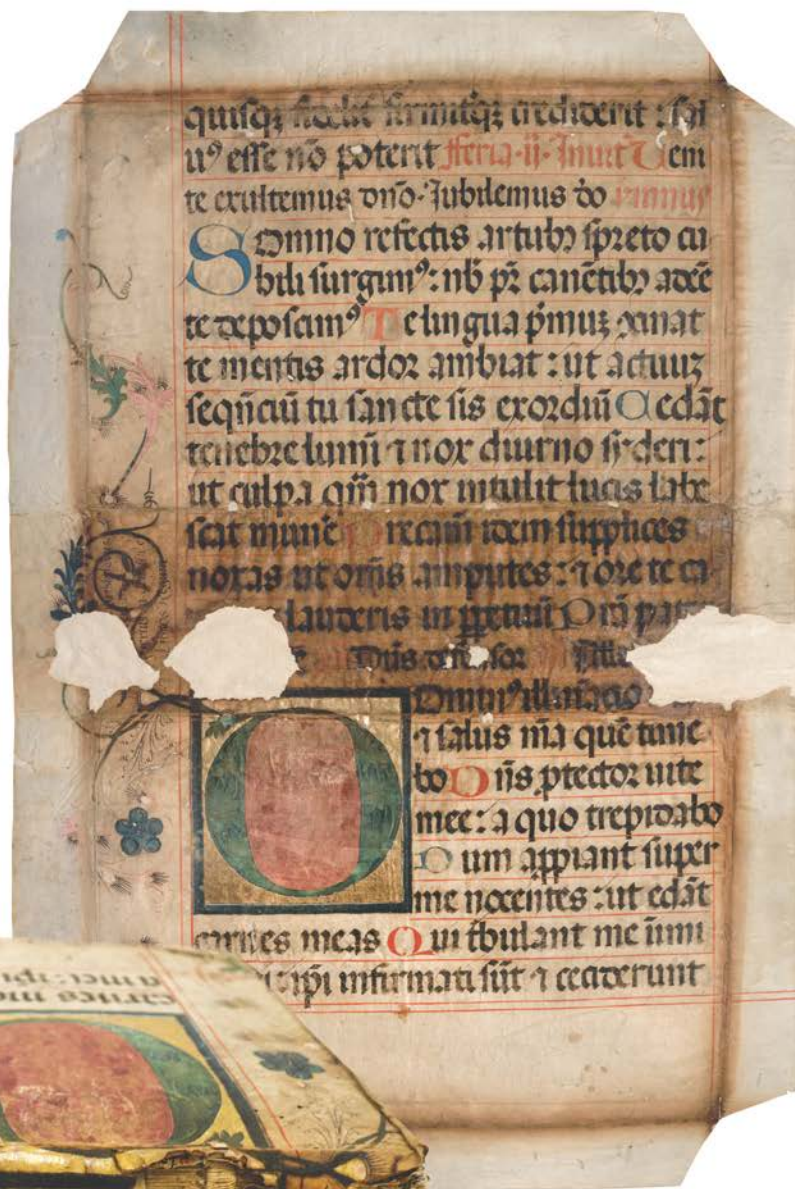 quisq; fidelit̃ firmit̃q; crediderit : sal
uꝰ esse nõ poterit fferia · ii · Inuit̃ Ueni
te exultemus dño · Iubilemus d̃o
Somno refectis artubꝫ spreto cu
bili surgimꝰ : nb̃ pr̃ canẽtibꝫ adeẽ
te deposcimꝰ Te lingua p̃muz c̃inat
te mentis ardor ambiat : ut actuuz
seqũciũ tu sancte sis exordiũ Cedãt
tenebre lumĩ ⁊ nox diurno syderi :
ut culpa qm̃ nox intulit lucis labe
scat mun̄e Precam̃ idem supplices
noxas ut om̃s amputes : ⁊ ore te ca
lauderis in ꝑpetuũ Prã pat
Dñs defensor
Dominꝰ illũiacio
⁊ salus m̃a quẽ time
bo Dñs ꝓtector uite
mee : a quo trepidabo
Dum aꝓpiant super
me nocentes : ut edãt
carnes meas Qui t̃bulant me inimi
: ip̃i infirmati sũt ⁊ ceciderunt
carnes me
a mei : ip̃i